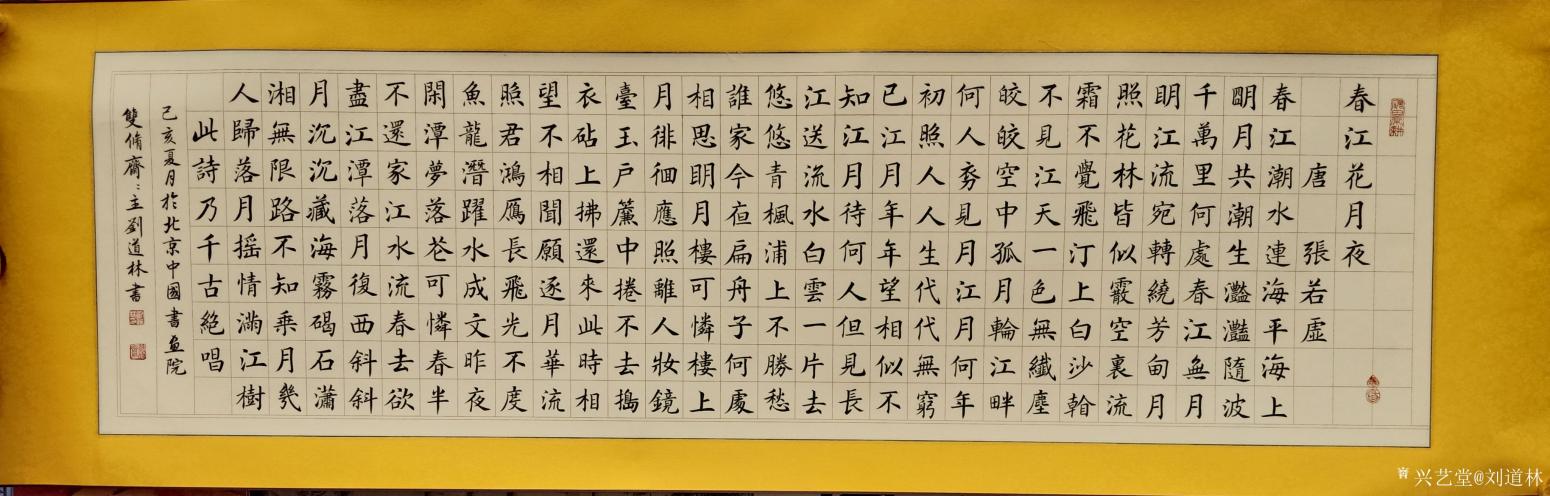 春江花月夜
唐 張若虛
春江潮水連海平海上
明月共潮生灩灩隨波
千萬里何處春江無月
明江流宛轉繞芳甸月
照花林皆似霰空裏流
霜不覺飛汀上白沙看
不見江天一色無纖塵
皎皎空中孤月輪江畔
何人初見月江月何年
初照人人生代代無窮
已江月年年望相似不
知江月待何人但見長
江送流水白雲一片去
悠悠青楓浦上不勝愁
誰家今夜扁舟子何處
相思明月樓可憐樓上
月徘徊應照離人妝鏡
臺玉戶簾中捲不去搗
衣砧上拂還來此時相
望不相聞願逐月華流
照君鴻雁長飛光不度
魚龍潛躍水成文昨夜
閑潭夢落花可憐春半
不還家江水流春去欲
盡江潭落月復西斜斜
月沉沉藏海霧碣石瀟
湘無限路不知乘月幾
人歸落月搖情滿江樹
此詩乃千古絕唱
己亥夏月於北京中國書畫院
雙脩齋主劉道林書
兴艺堂@刘道林